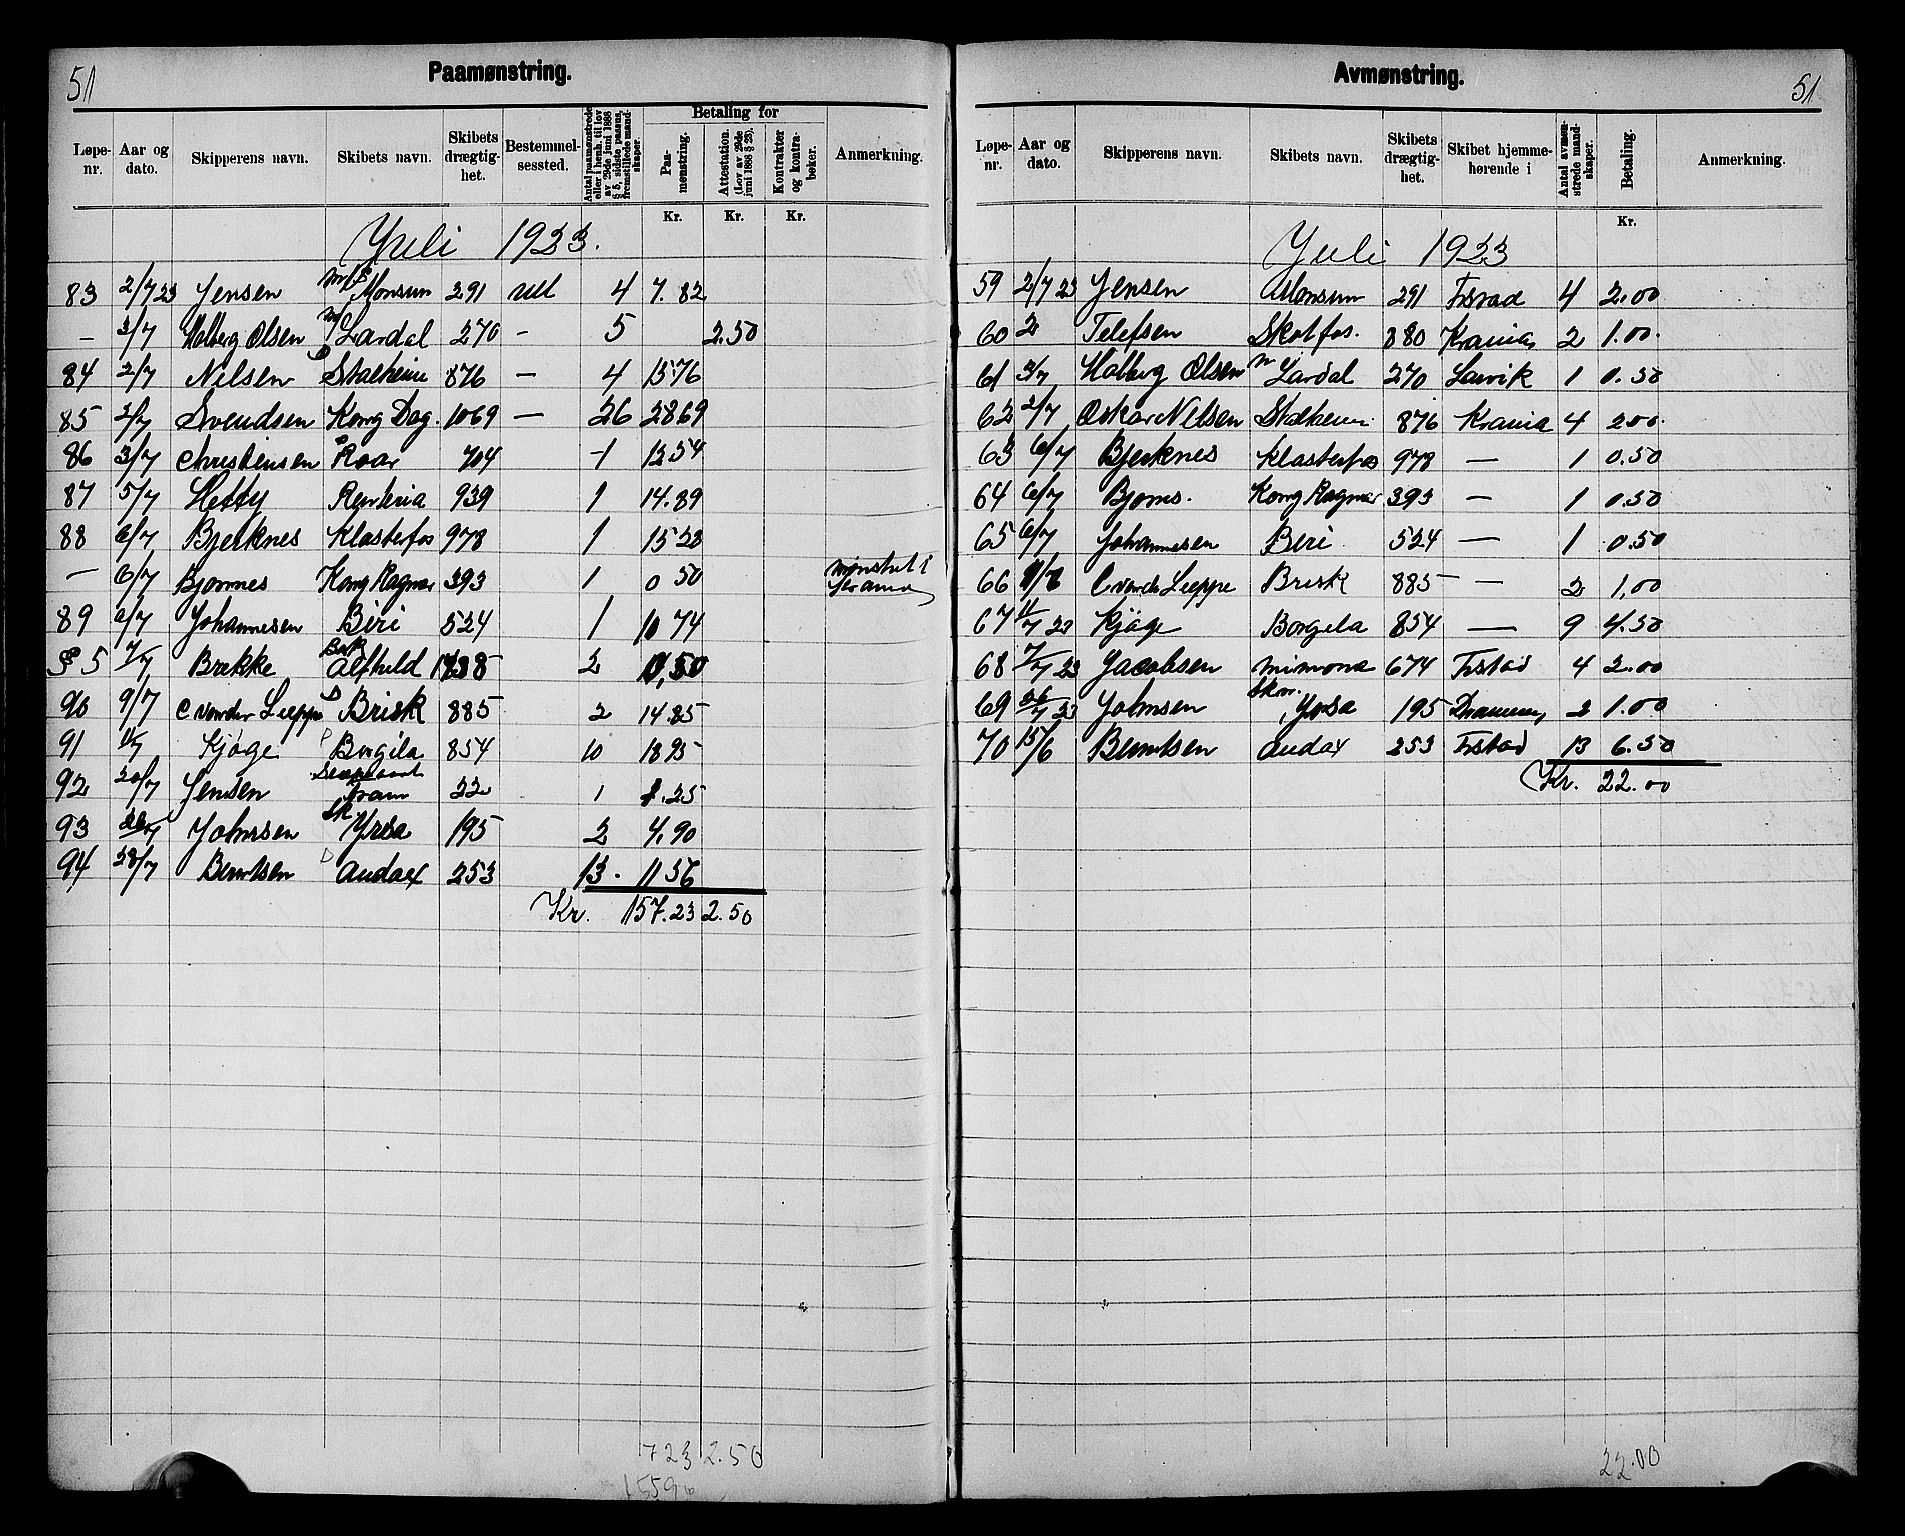 51
Paamønstring.
Løpe-nr. Aar og dato. Skipperens navn. Skibets navn. Skibets drægtig-het. Bestemmel-sessted. Antal paamønstrede eller i henh. til lov av 29de juni 1888 § 5, sidste passus, fremstillede mand-skaper. Betaling for Paa-mønstring. Attestation. (Lov av 29de juni 1888 § 23). Kontrakter og kontra-bøker. Anmerkning.
Kr. Kr. Kr.
Juli 1923.
83 2/7 23 Jensen m/s Monsun 291 utl 4 7.82
— 3/7 Holberg Olsen m Lardal 270 - 5 2.50
84 2/7 Nilsen D Stalheim 876 — 4 1576
85 2/7 Svendsen Kong Dag. 1069 — 26 2869
86 3/7 Christensen D Roar 704 1
87 5/7 Hetty Renteria 939 1 14.89
88 6/7 Bjerknes Klosterfos 978 1
— 6/7 Bjornnes Kong Ragnar 393 1 0 50 mønstret i
89 6/7 Johannesen Biri 524 1 10 74
§ 5 7/7 Brække Bark Alfhild 2
90 9/7 C vonder Lieppe D Brisk 885 2 14.85
91 11/7 Kjøge D Borgila 854 10 18 95
92 20/7 Jensen Fram 22 1 8.25
93 Johnsen Sk. Yrsa 195 2 4.90
94 28/7 Berntsen D Audax 253 13. 1156
Kr. 157.23 2.50
723 2.50
1559
Avmønstring.
51
Løpe-nr. Aar og dato. Skipperens navn. Skibets navn. Skibets drægtig-het. Skibet hjemme-hørende i Antal avmøn-strede mand-skaper. Betaling. Anmerkning.
Kr.
Juli 1923
59 2/7 23 Jensen Monsun 291 4 2.00
60 2 Telefsen Skotfos. 380 Krania 2 1.00.
61 3/7 Holberg Olsen m Lardal 270 Larvik 1 0.50
62 2/7 Oskar Nilsen Stalheim 876 Krania 4 200.
63 6/7 Bjerknes Klosterfos 978 — 1 0.50
64 6/7 Bjorns. Kong Ragnar 393 — 1 0.50
65 6/7 Johannesen Biri 524 — 1 0.50
66 C vonder Lieppe Brisk 885 — 2 1.00
67 11/7 23 Kjöge Borgila 854 — 9 4.50
68 7/7 23 Jacobsen Mimona 674 Frstad 4 2.00
69 26/7 23 Johnsen Skm. Yrsa 195 Drammen 2 1.00
70 15/6 Berntsen Audax 253 Frstad 13 6.50
Kr. 22.00
22.00